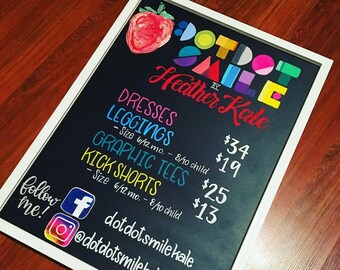 DOT DOT
SMILE
BY
Heather Kale
DRESSES $34
LEGGINGS $19
- Size 6/12 mo. - 8/10 child
GRAPHIC TEES $25
KICK SHORTS $13
- Size 6/12 mo. - 8/10 child
follow
me!
f dotdotsmilekale
@dotdotsmilekale